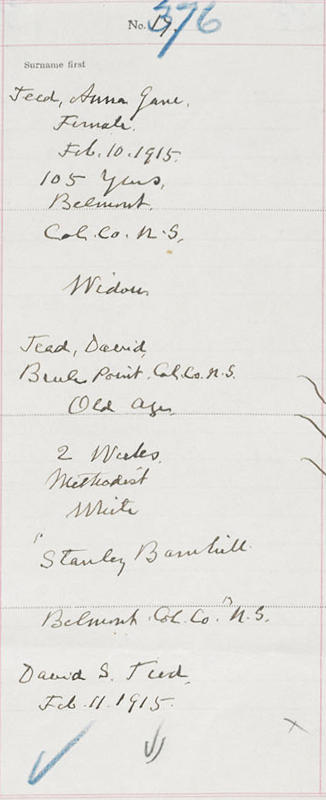 No. 17.
376
Surname first
Teed, Anna Jane.
Female.
Feb. 10. 1915.
105 Years,
Belmont.
Col. Co. N.S,
Widow,
Tead, David,
Brule Point. Col. Co. N.S.
Old Age,
2 Weeks.
Methodist
White
"Stanley Barnhill
Belmont. Col. Co." N.S.
David S. Teed,
Feb. 11. 1915.